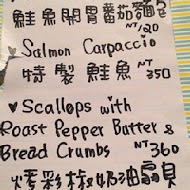 鮭魚開胃蕃茄麵包
NT 120
Salmon Carpaccio
特製鮭魚 NT 350
♥ Scallops with
Roast Pepper Butter &
Bread Crumbs NT 360
烤彩椒奶油扇貝